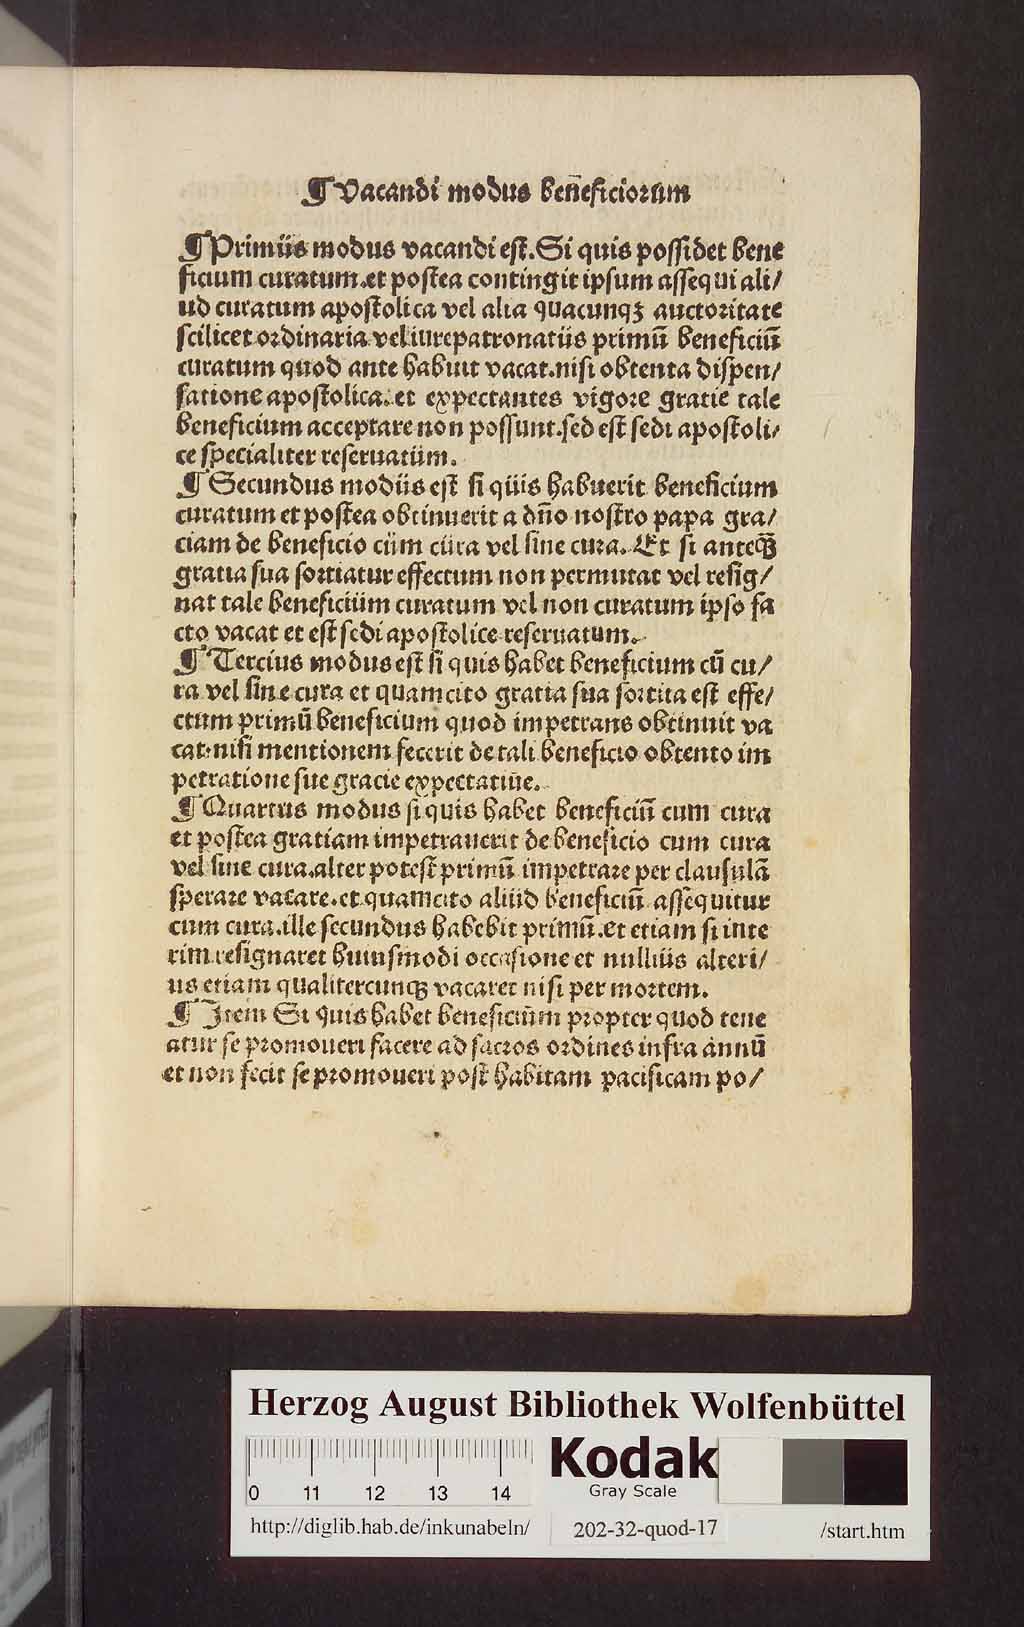 ¶ Vacandi modus ben̄eficiorum
¶ Primüs modus vacandi est. Si quis possidet bene
ficium curatum.et postea contingit ipsum assequi ali/
ud curatum apostolica vel alia quacunqꝫ auctoritate
scilicet ordinaria vel iurepatronatüs primū beneficiū
curatum quod ante habuit vacat.nisi obtenta dispen/
satione apostolica.et expectantes vigore gratie tale
beneficium acceptare non possunt.sed est sedi apostoli/
ce specialiter reseruatüm.
¶ Secundus modüs est si qüis habuerit beneficium
curatum et postea obtinuerit a dño nostro papa gra/
ciam de beneficio cüm cüra vel sine cura. Et si anteq̃
gratia sua sortiatur effectum non permutat vel resig/
nat tale beneficiüm curatum vel non curatum ipso fa
cto vacat et est sedi apostolice reseruatum.
¶ Tercius modus est si quis habet beneficium cū cu/
ra vel sine cura et quamcito gratia sua sortita est effe/
ctum primū beneficium quod impetrans obtinuit va
cat.nisi mentionem fecerit de tali beneficio obtento im
petratione sue gracie expectatiüe.
¶ Quartus modus si quis habet beneficiū cum cura
et postea gratiam impetrauerit de beneficio cum cura
vel sine cura.alter potest primū impetrare per clausulā
sperare vacare.et quamcito aliüd beneficiū assequitur
cum cura.ille secundus habebit primū.et etiam si inte
rim resignaret huiusmodi occasione et nulliüs alteri/
us etiam qualitercunqꝫ vacaret nisi per mortem.
¶ Item Si quis habet beneficiüm propter quod tene
atur se promoueri facere ad sacros ordines infra annū
et non fecit se promoueri post habitam pacificam po/
Herzog August Bibliothek Wolfenbüttel
0 11 12 13 14
Kodak
Gray Scale
http://diglib.hab.de/inkunabeln/ 202-32-quod-17 /start.htm